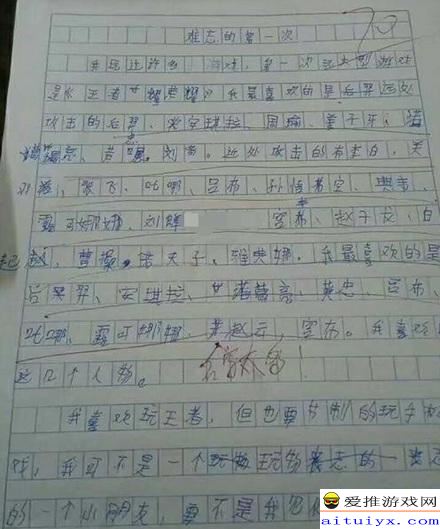 难忘的第一次
我玩过许多 游戏，第一次玩大型游戏
是《王者荣耀》我最喜欢的是后羿远处
攻击的后羿、安琪拉、周瑜、姜子牙、诸
葛亮、黄忠、刘备。近处攻击的有李白、关
羽、张飞、哪吒、吕布、孙悟空、典韦、
露娜、刘 空布、赵子龙、白
起、曹操、诺天子、雅典娜。我最喜欢的是
后羿、安琪拉、诸葛亮、黄忠、吕布、
哪吒、露娜、赵云、空布。我喜欢
这几个人物。
名字太多！
我喜欢玩王者，但也要节制的玩手机
戏，我可不是一个玩物丧志的一
的一个小朋友 要不是我
爱推游戏网
www.aituiyx.com